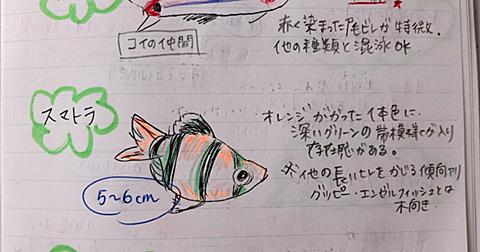 赤く染まった尾ビレが特徴。
他の種類と混泳OK
コイの仲間
スマトラ
オレンジがかった体色に
深いグリーンの帯模様が入り
存在感がある。
※他の長いヒレをかじる傾向アリ
グッピー・エンゼルフィッシュとは
不向き
5~6cm